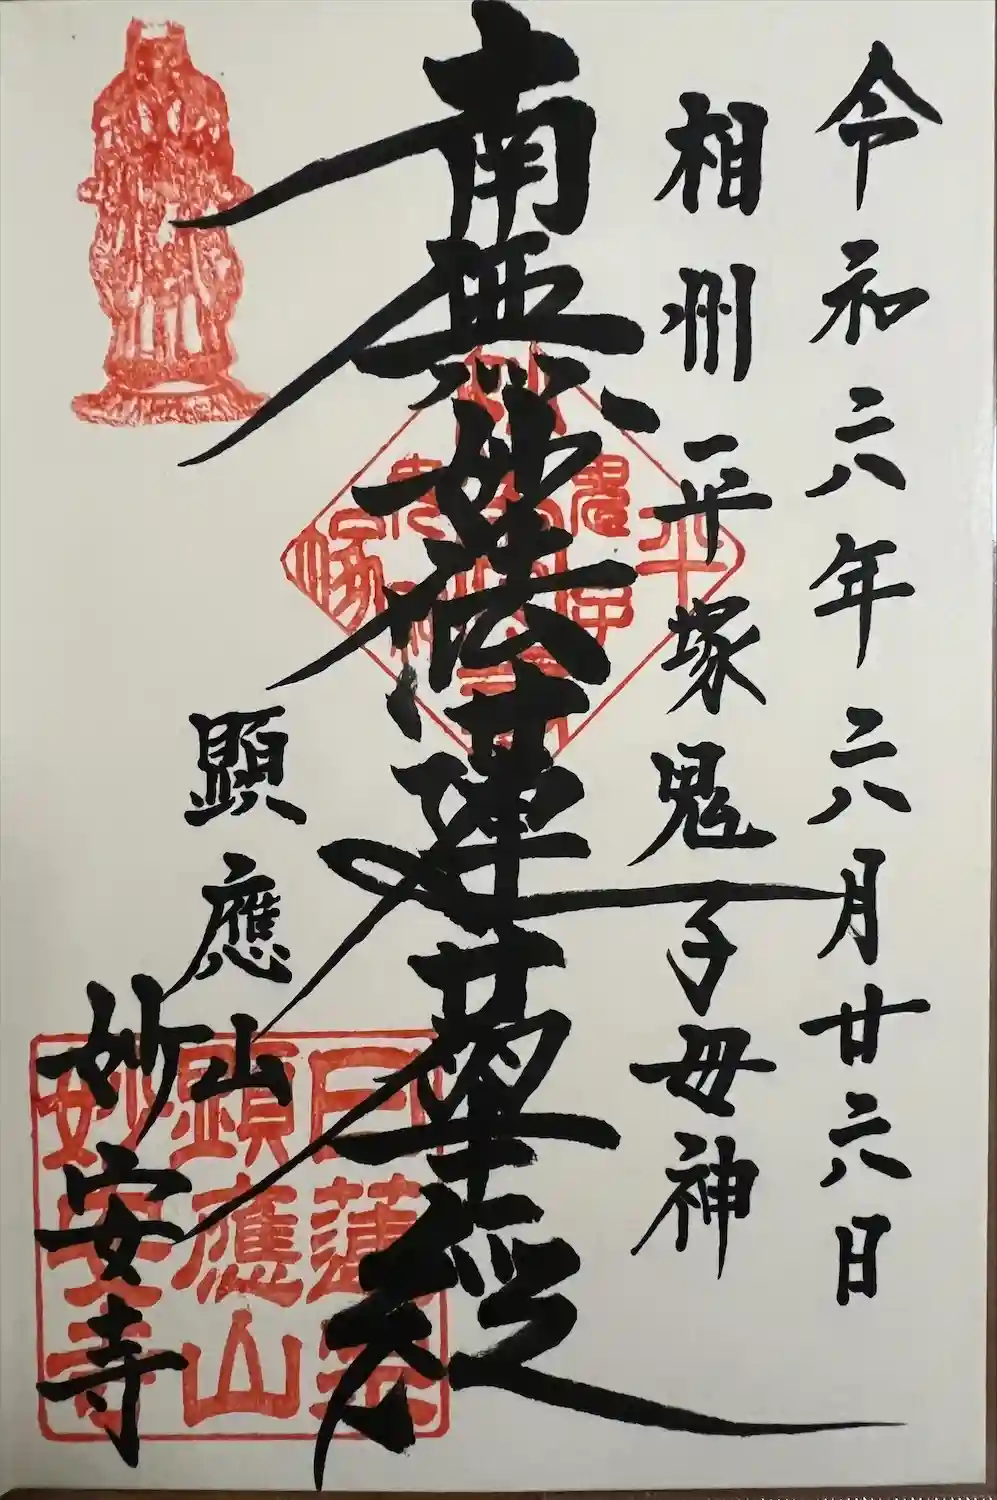 令和六年六月廿六日
相州平塚鬼子母神
南無妙法蓮華経
顕應山
妙安寺
平塚
日蓮宗
顕應山
妙安寺